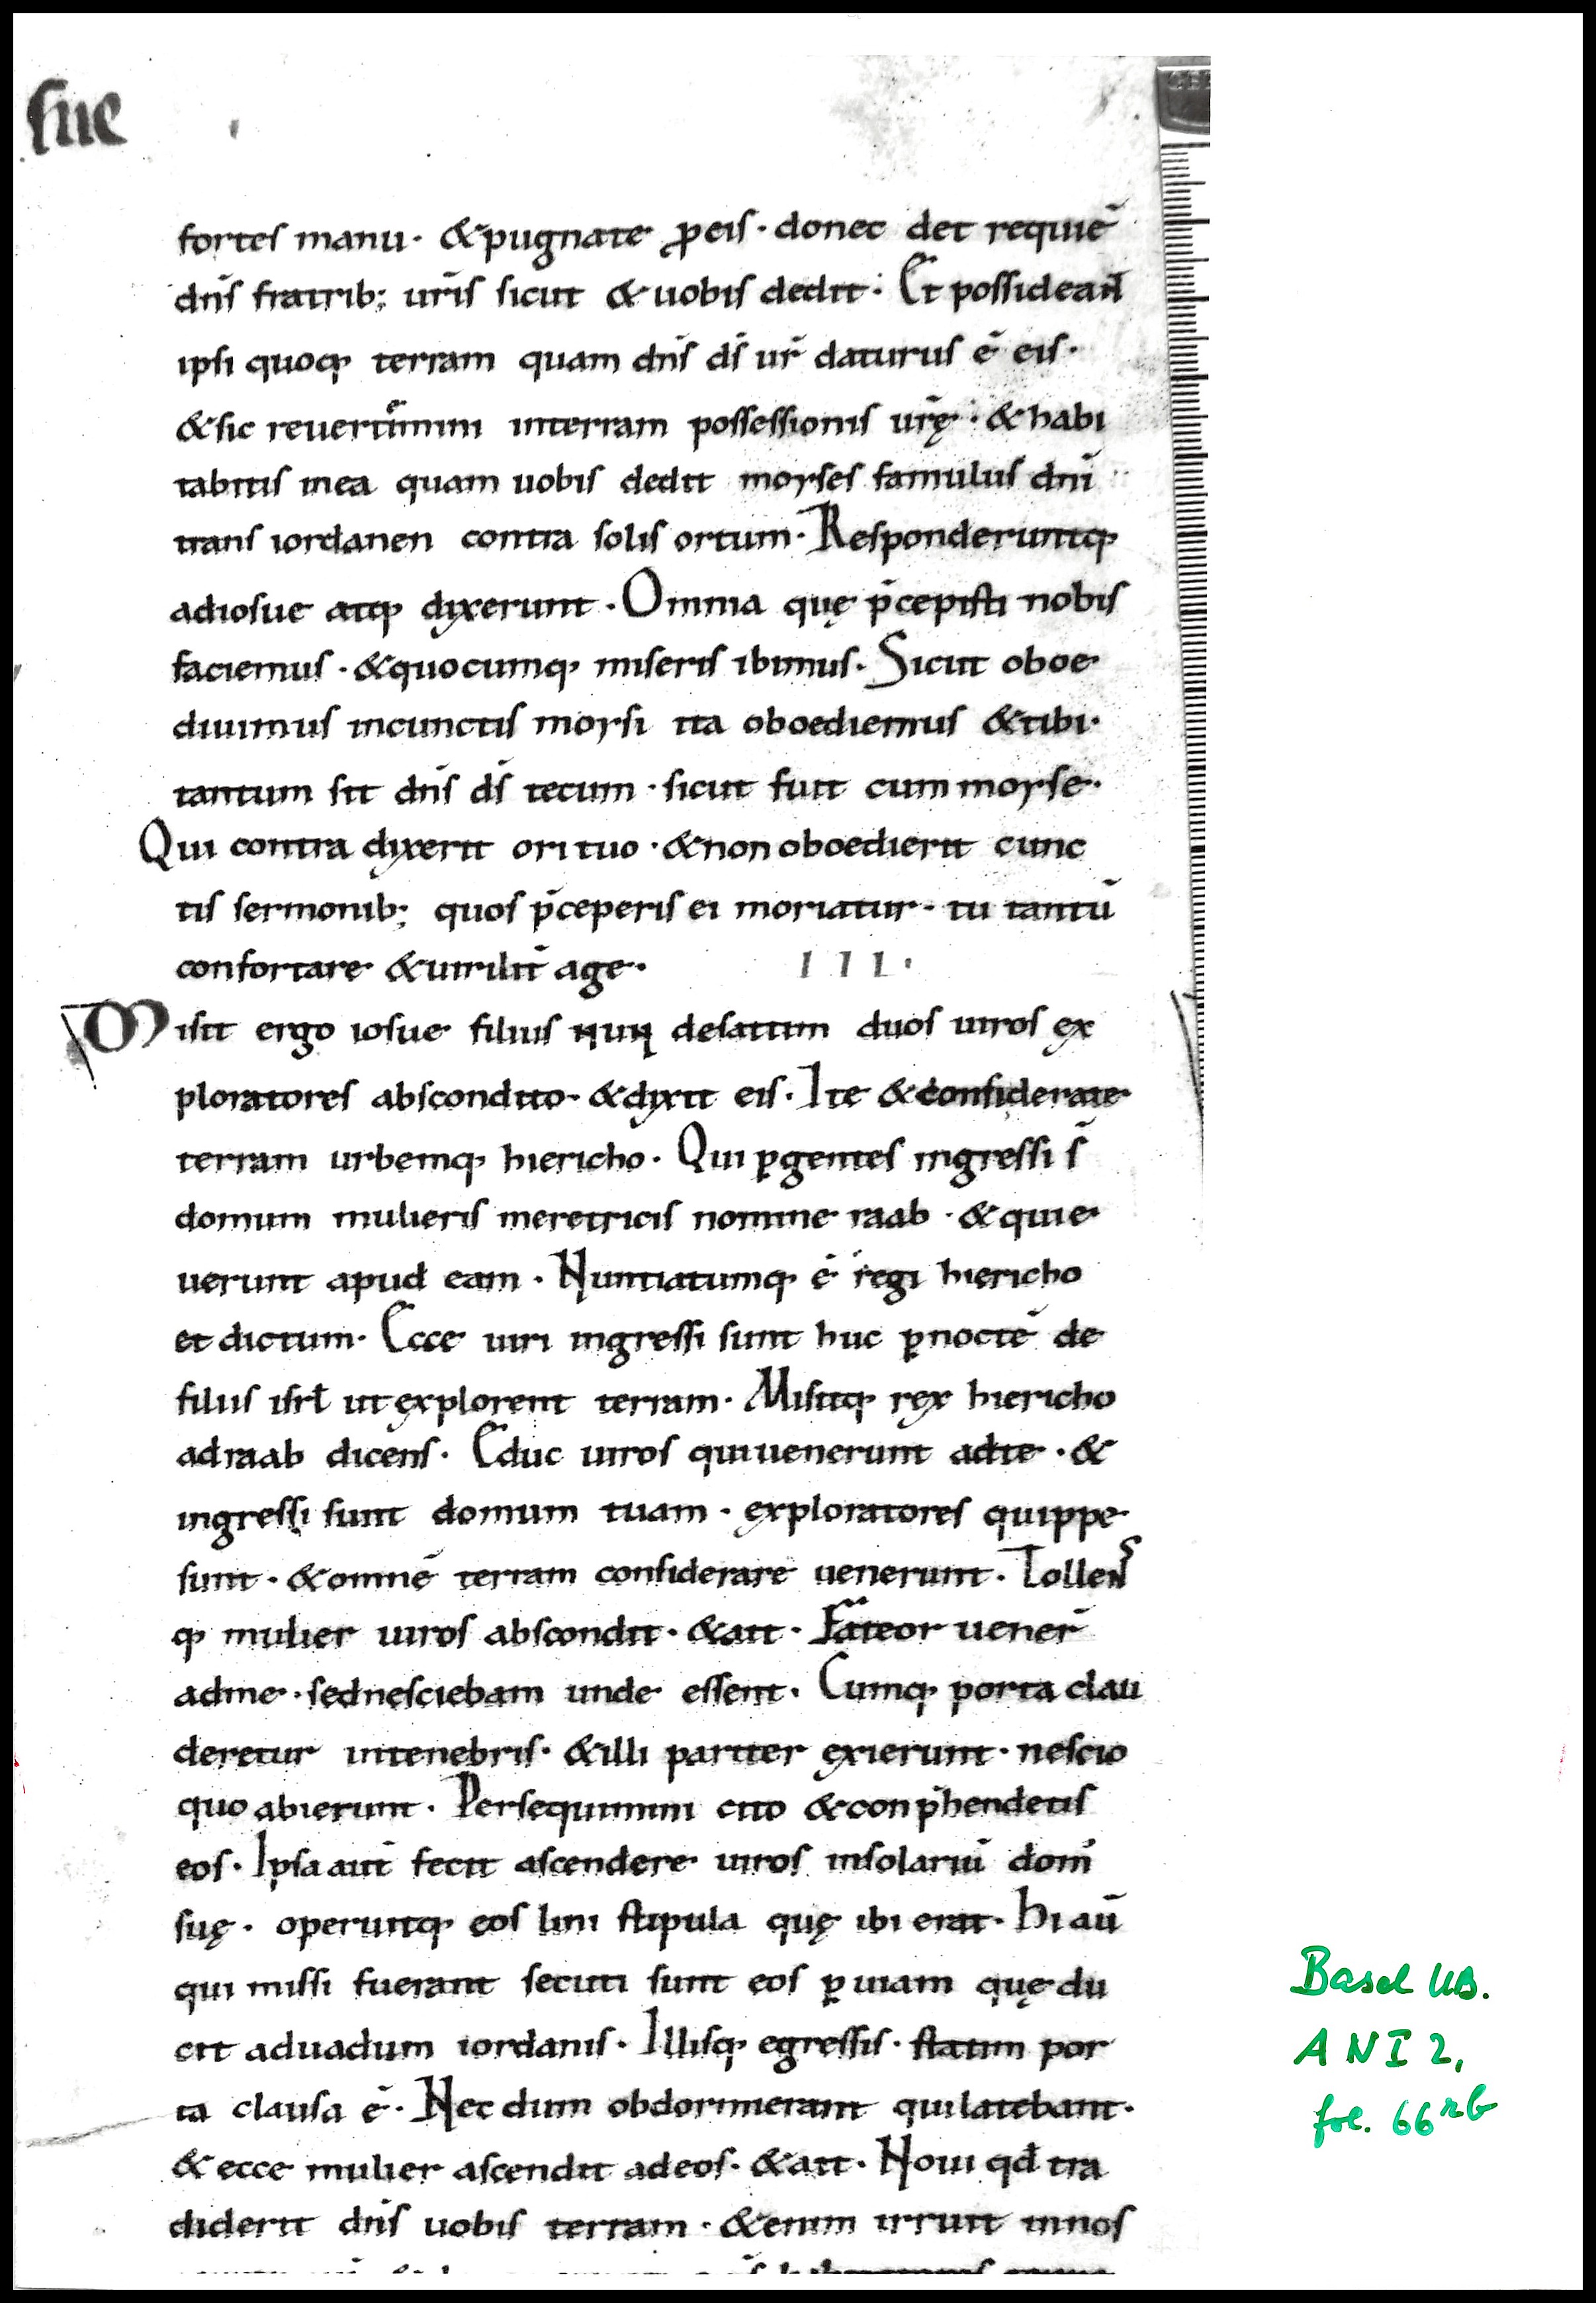 sue
fortes manu· & pugnate ꝓ eis· donec det requiē
dn̄s fratrib; ur̄is sicut & uobis dedit· Et possideant
ipsi quoq; terram quam dn̄s ds̄ ur̄ daturus ē eis·
& sic reuertemini in terram possessionis ur̄ę· & habi
tabitis in ea quam uobis dedit moyses famulus dn̄i
trans iordanen contra solis ortum· Responderuntq;
ad iosue atq; dixerunt· Omnia quę p̄cepisti nobis
faciemus· & quocumq; miseris ibimus· Sicut oboe
diuimus in cunctis moysi ita oboediemus & tibi·
tantum sit dn̄s ds̄ tecum· sicut fuit cum moyse·
Qui contra dixerit ori tuo· & non oboedierit cunc
tis sermonib; quos p̄ceperis ei moriatur· tu tantū
confortare & uirilit̄ age· III·
Misit ergo iosue filius nun de sattim duos uiros ex
ploratores abscondito· & dixit eis· Ite & considerate
terram urbemq; hiericho· Qui ꝑgentes ingressi s̄
domum mulieris meretricis nomine raab· & quie
uerunt apud eam· Nuntiatumq; ē regi hiericho
et dictum· Ecce uiri ingressi sunt huc ꝑ noctē de
filiis isrl̄ ut explorent terram· Misitq; rex hiericho
ad raab dicens· Educ uiros qui uenerunt ad te· &
ingressi sunt domum tuam· exploratores quippe
sunt· & omnē terram considerare uenerunt· Tollens
q; mulier uiros abscondit· & ait· Fateor uener̄
ad me· sed nesciebam unde essent· Cumq; porta clau
deretur in tenebris· & illi pariter exierunt· nescio
quo abierunt· Persequimini cito & conp̄hendetis
eos· Ipsa aut̄ fecit ascendere uiros in solariū dom̄
suę· operuitq; eos lini stipula quę ibi erat· Hi aū
qui missi fuerant secuti sunt eos ꝑ uiam quę du
cit ad uadum iordanis· Illisq; egressis· statim por
ta clausa ē· Nec dum obdormierant qui latebant·
& ecce mulier ascendit ad eos· & ait· Noui qd̄ tra
diderit dn̄s uobis terram· & enim irruit in nos
Basel UB.
A N I 2,
fol. 66rb